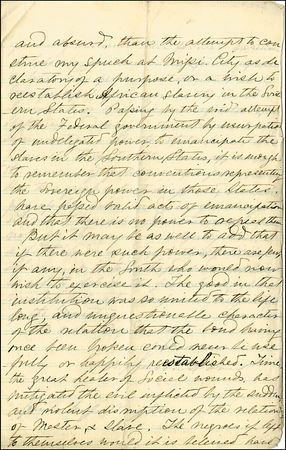 and absurd, than the attempt to con
strue my speech at Missi. City as de
claratory of a purpose, or a wish to
reestablish African Slavery in the Sou
ern States. Passing by the attempt
of the Federal government by usurpation
of undelegated power, to emancipate the
slaves in the Southern States, it is enough
to remember that conventions representing
the Sovereign power in those States
have passed acts of emancipation
and that there is no power to
But it may be as well to add that
if there were such power, there are few
if any, in the South who would now
wish to exercise it. The good in that
institution was so united to the life
long, and unquestionable character
of the relation that the bond having
once been broken could never be use
fully or happily reestablished. Time
the great healer of social wounds, has
mitigated the evil inflicted by the sudden
and violent disruption of the relation
of Master & slave. The negroes if left
to themselves would it is believed have